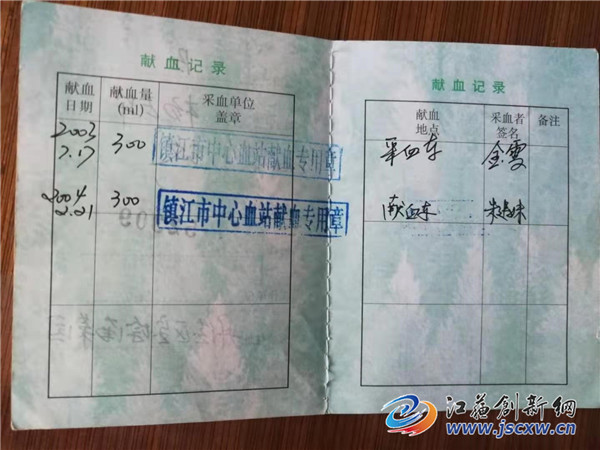 献血记录
献血日期
献血量(ml)
采血单位盖章
2003
7.17
300
镇江市中心血站献血专用章
2004
2.21
300
镇江市中心血站献血专用章
献血记录
献血地点
采血者签名
备注
采血车
金雯
献血车
江苏创新网
www.jscxw.cn